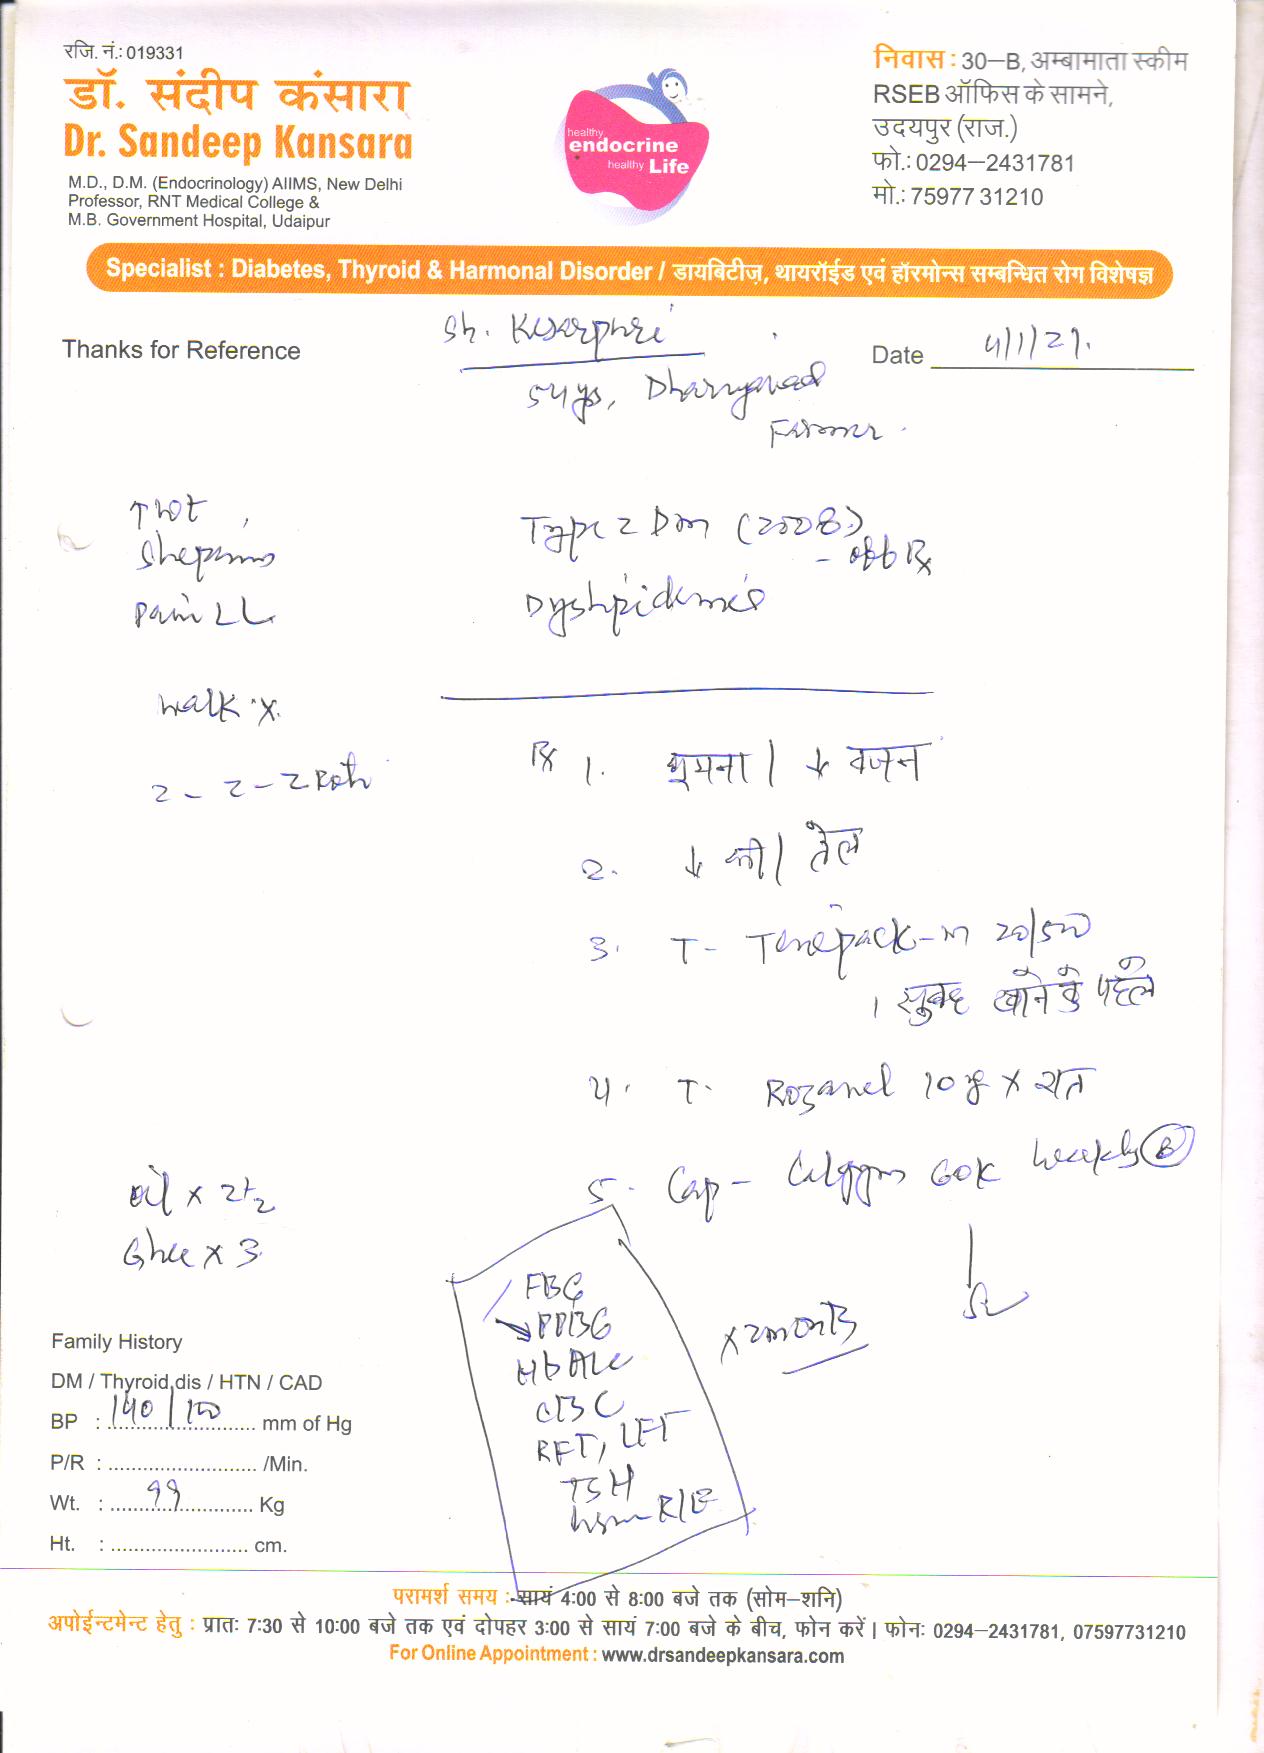 रजि. नं.: 019331
डॉ. संदीप कंसारा
Dr. Sandeep Kansara
M.D., D.M. (Endocrinology) AIIMS, New Delhi
Professor, RNT Medical College &
M.B. Government Hospital, Udaipur
healthy
endocrine
healthy Life
निवास : 30–B, अम्बामाता स्कीम
RSEB ऑफिस के सामने,
उदयपुर (राज.)
फो.: 0294–2431781
मो.: 75977 31210
Specialist : Diabetes, Thyroid & Harmonal Disorder / डायबिटीज़, थायरॉईड एवं हॉरमोन्स सम्बन्धित रोग विशेषज्ञ
Thanks for Reference
Sh.
Date 4/1/21.
54 yrs,
Farmer
Type 2 DM (2008)
- off Rx
Dyslipidemia
Pain LL
walk x
2 - 2 - 2 Roti
Rx 1. घूमना / ↓ वजन
2. ↓ घी / तेल
3. T- Tenepack-M 20/500
1 सुबह खाने के पहले
4. T. Rozanel 10 mg x रात
5. Cap - 60K weekly
oil x 2 1/2
Ghee x 3
FBG
PPBG
HbA1c
CBC
RFT, LFT
TSH
x 2 months
Family History
DM / Thyroid dis / HTN / CAD
BP : 140/100 mm of Hg
P/R : /Min.
Wt. : 99 Kg
Ht. : cm.
परामर्श समय :- सायं 4:00 से 8:00 बजे तक (सोम–शनि)
अपोईन्टमेन्ट हेतु : प्रातः 7:30 से 10:00 बजे तक एवं दोपहर 3:00 से सायं 7:00 बजे के बीच, फोन करें। फोनः 0294–2431781, 07597731210
For Online Appointment : www.drsandeepkansara.com